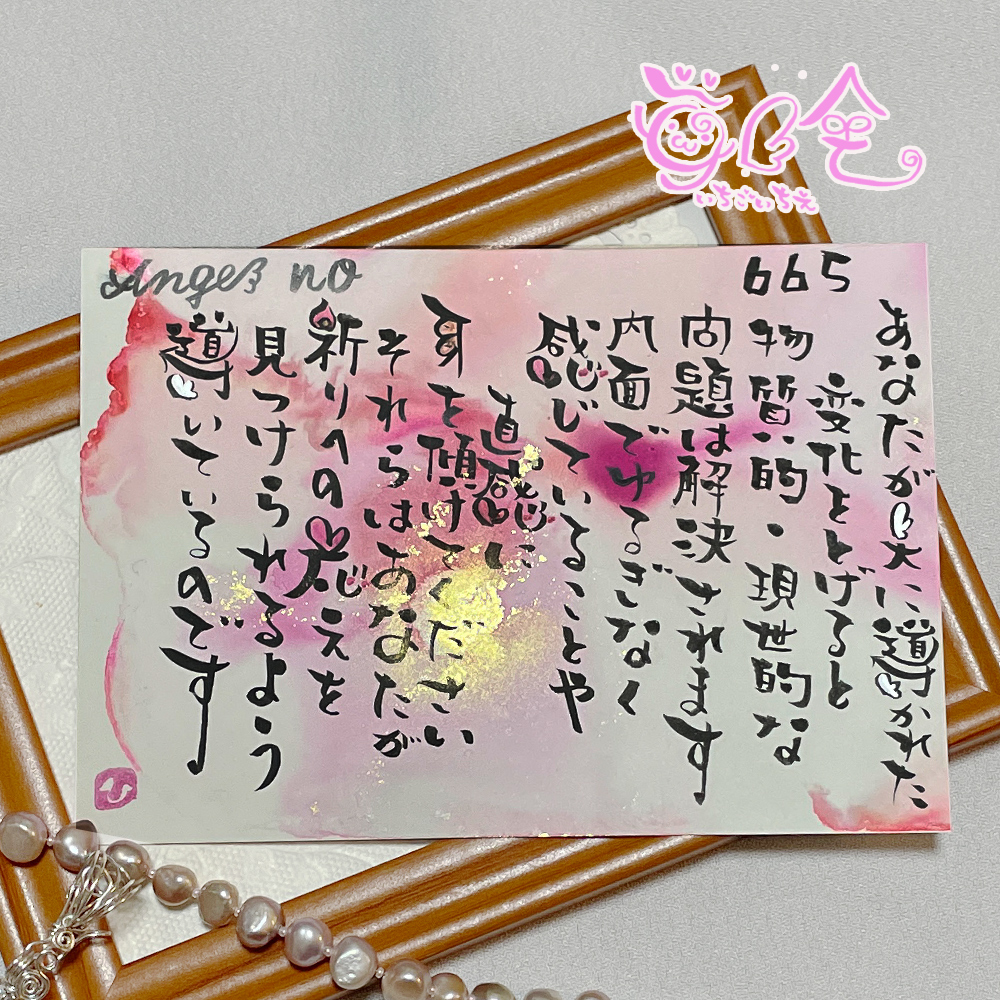 Angel no
665
あなたが天に導かれた
変化をとげると
物質的・現世的な
問題は解決されます
内面でゆるぎなく
感じていることや
直感に
耳を傾けてください
それらはあなたが
祈りへの応えを
見つけられるよう
導いているのです
いちごいちえ